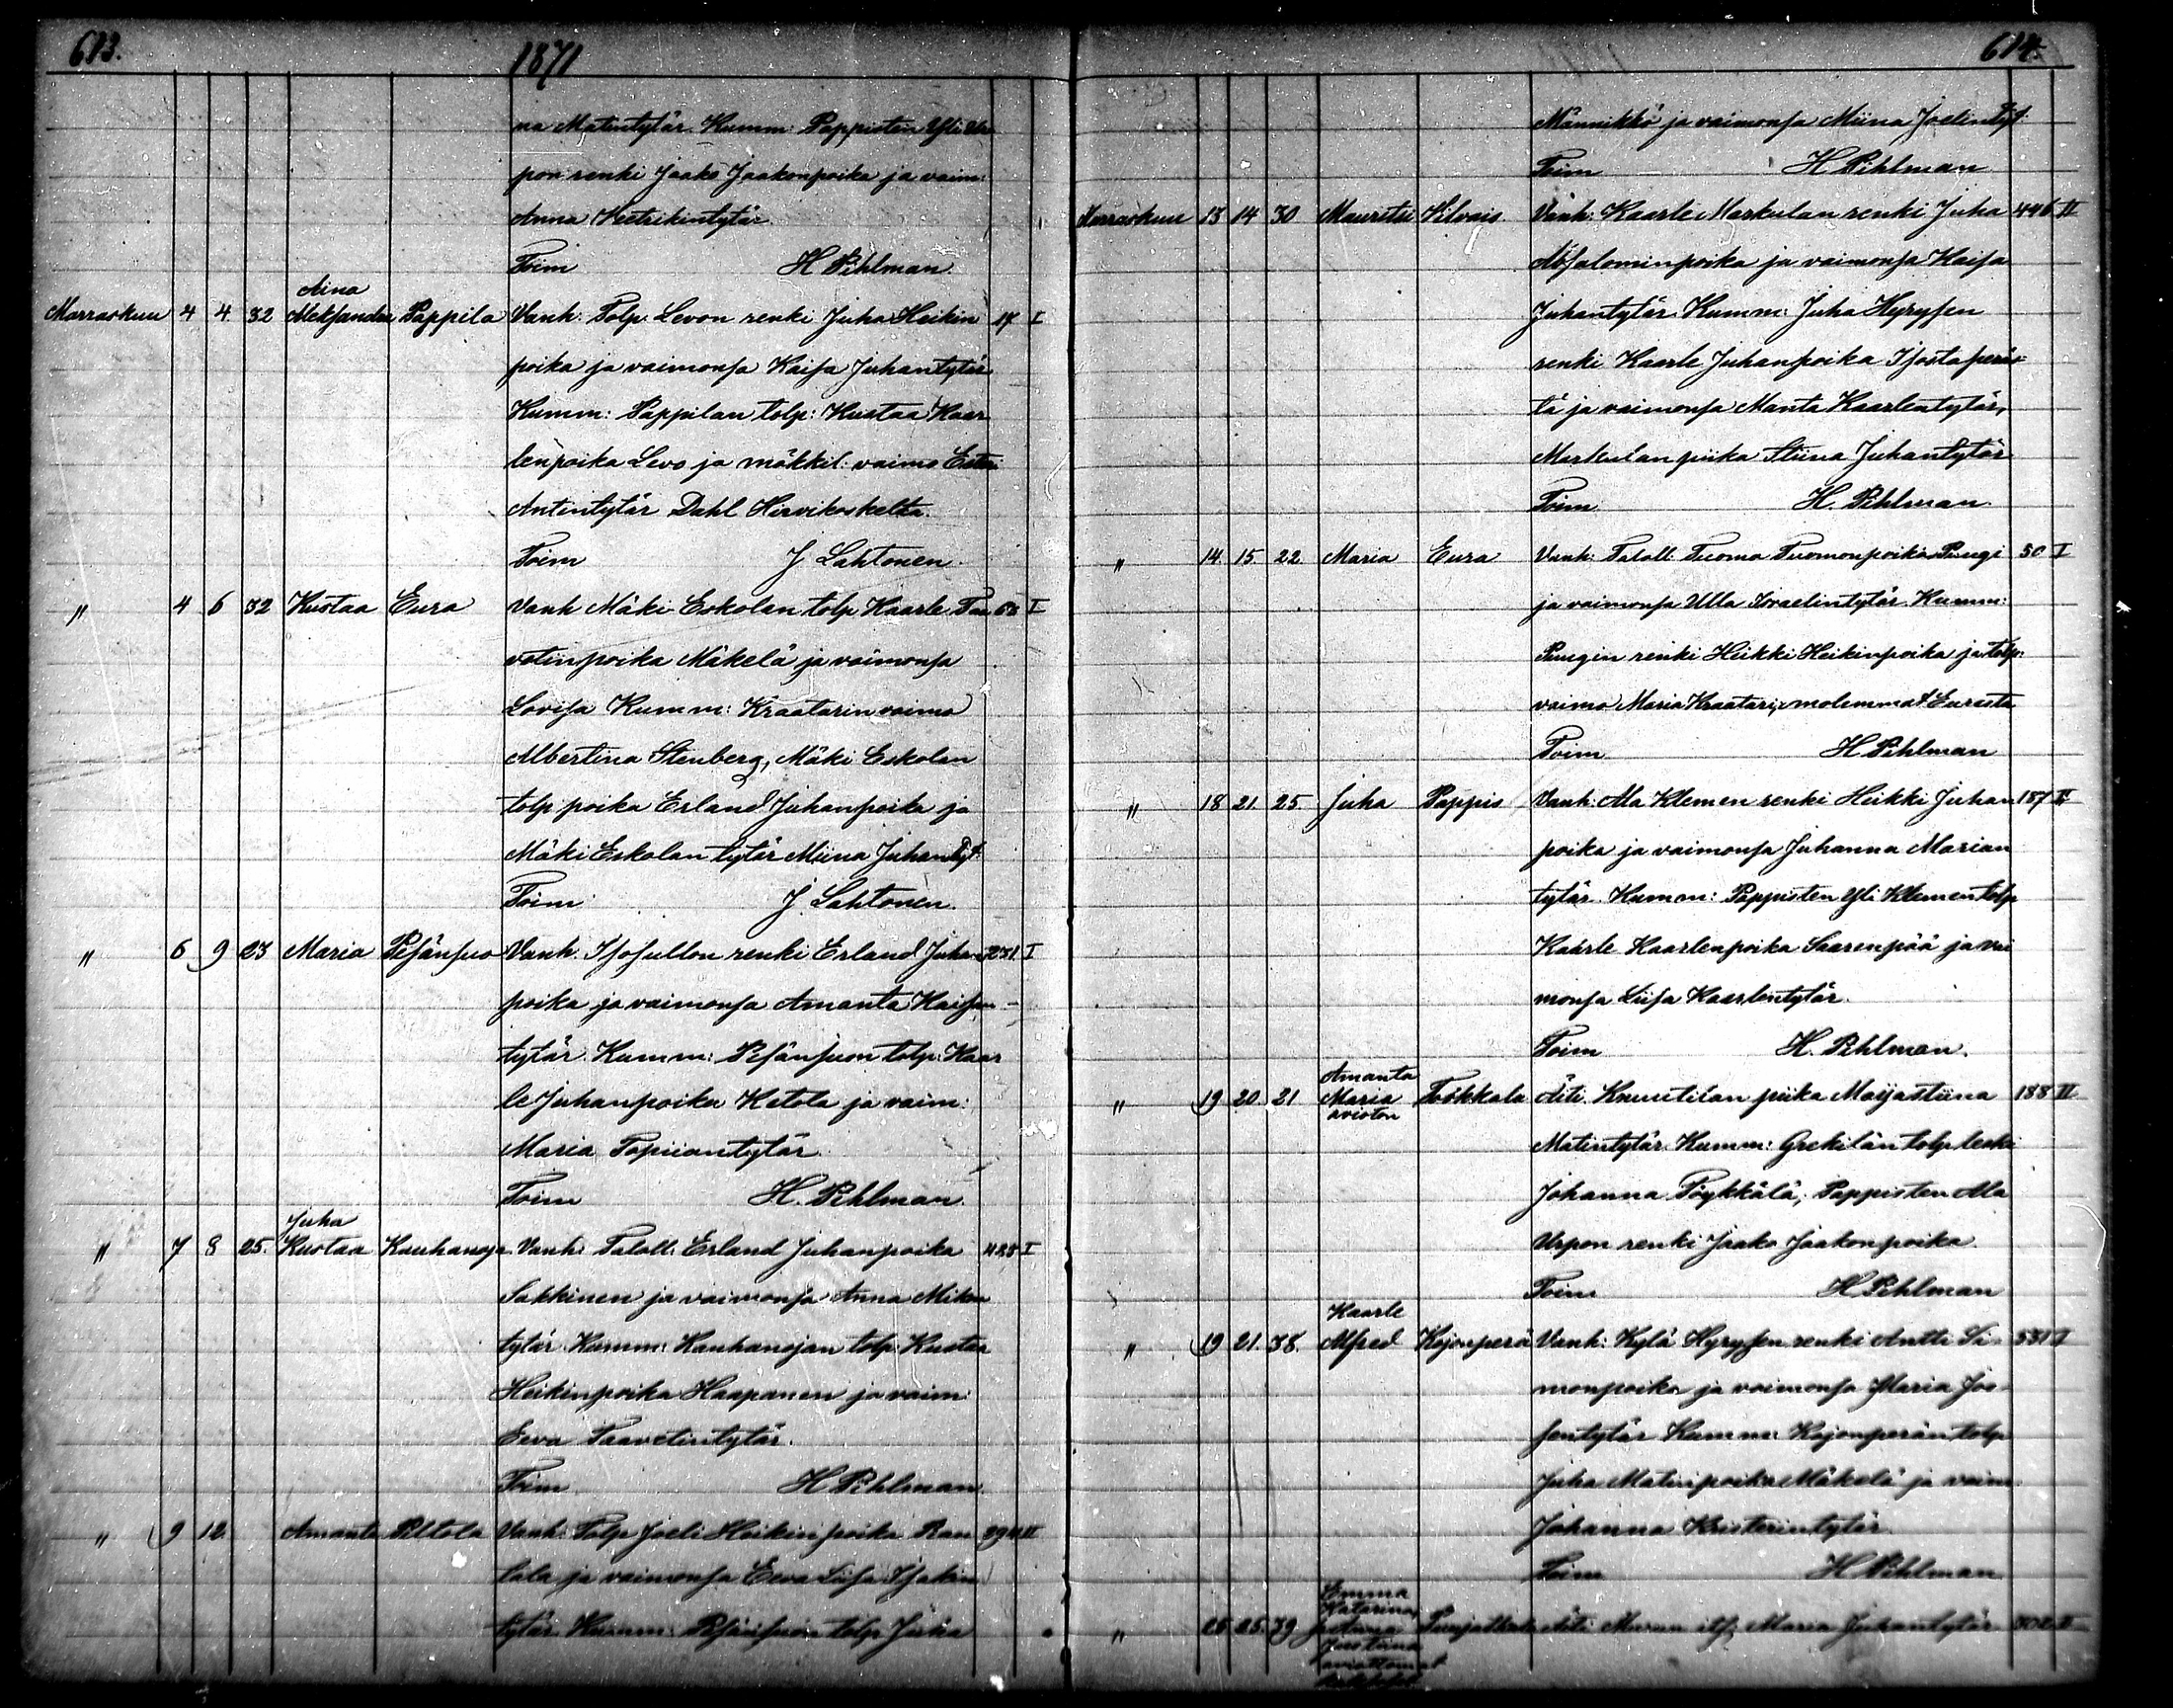 613.
1871
na Matintytär. Kumm: Pappisten Yli Ur
pon renki Jaako Jaakonpoika ja vaim:
Anna Keetrikintytär.
Toim H Pihlman
Aina
Marraskuu 4 4. 32 Aleksandra Pappila Vanh: Tolp. Levon renki Juha Heikin 17 I
poika ja vaimonsa Kaisa Juhantytär
Kumm: Pappilan tolp: Kustaa Kaar
lenpoika Levo ja mäkkil: vaimo Ester
Antintytär Dahl Hirvikoskelta.
Toim J Lahtonen.
" 4 6 32 Kustaa Eura Vanh Mäki Eskolan tolp Kaarle Taa I
vetinpoika Mäkelä ja vaimonsa
Lovisa Kumm: Kraatarin vaimo
Albertina Stenberg, Mäki Eskolan
tolp poika Erland Juhanpoika ja
Mäki Eskolan tytär Miina Juhantyt.
Toim J. Lahtonen.
" 6 9 23 Maria Pesänsuo Vanh. Isosullon renki Erland Juhan 231 I
poika ja vaimonsa Amanta Kaisan-
tytär. Kumm: Pesänsuon tolp: Kaar
le Juhanpoika Ketola ja vaim:
Maria Topiiantytär.
Toim H. Pihlman.
Juha
" 7 8 25. Kustaa Kauhanoja Vanh: Taloll: Erland Juhanpoika 423 I
Sakkinen ja vaimonsa Anna Mikon
tytär. Kumm: Kauhanojan tolp. Kustaa
Heikinpoika Haapanen ja vaim:
Eeva Taavetintytär.
Toim H Pihlman.
" 9 12. Amanta Piltola Vanh: Tolp Joeli Heikinpoika Ran II
tala ja vaimonsa Eeva Liisa Isakin
tytär. Kumm: Pesänsuon tolp Juha
614.
Männikkö ja vaimonsa Miina Joelintyt.
Toim H Pihlman
Marraskuu 13 14 30 Mauritsi Hilvais Vanh: Kaarle Markulan renki Juha 446 II
Absalominpoika ja vaimonsa Kaisa
Juhantytär. Kumm: Juha Hyrysen
renki Kaarle Juhanpoika Isostaperäs
tä ja vaimonsa Manta Kaarlentytär,
Markulan piika Stiina Juhantytär
Toim H. Pihlman.
" 14. 15. 22. Maria Eura Vanh: Taloll: Tuomo Tuomonpoika Puugi 30 I
ja vaimonsa Ulla Israelintytär. Kumm:
Puugin renki Heikki Heikinpoika ja tolp:
vaimo Maria Kraatari, molemmat Eurasta
Toim H Pihlman
" 18 21. 25. Juha Pappis Vanh: Ala Klemen renki Heikki Juhan 187 II
poika ja vaimonsa Juhanna Marian
tytär. Kumm: Pappisten Yli Klemen tolp
Kaarle Kaarlenpoika Saarenpää ja vai
monsa Liisa Kaarlentytär.
Toim H. Pihlman.
Amanta
" 19 20. 21 Maria Töökkala Äiti. Knuutilan piika Maijastiina 188 II
avioton
Matintytär. Kumm: Grekilän tolp. leski
Johanna Töykkälä, Pappisten Ala
Urpon renki Jaako Jaakonpoika.
Toim H Pihlman
Kaarle
" 19 21. 38. Alfred Kojonperä Vanh: Kylä Hyrysen renki Antti Si- 331 I
monpoika ja vaimonsa Maria Joo-
sentytär Kumm: Kojonperän tolp
Juha Matinpoika Mäkelä ja vaim
Johanna Kristerintytär.
Toim H Pihlman
Emma
Katarina,
" 25 25. 39 Äiti Muun its. Maria Juhantytär 302 II
Justiina
aviottomat